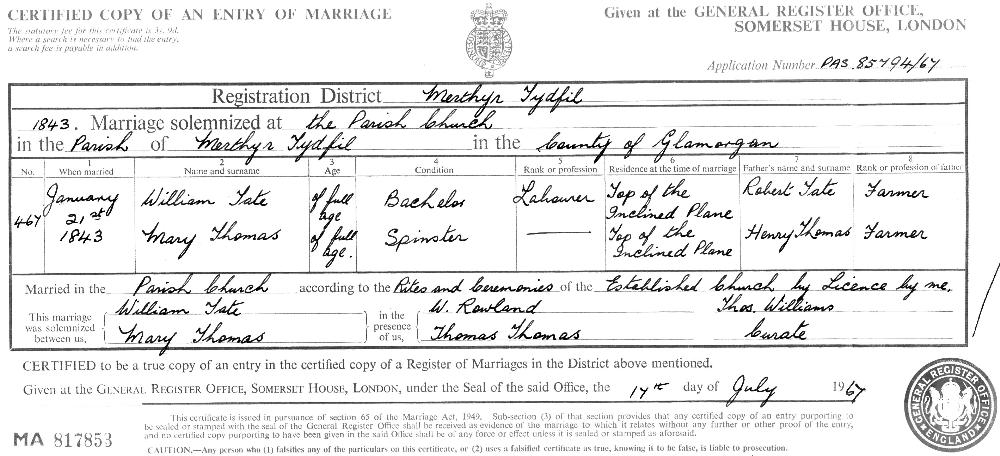 CERTIFIED COPY OF AN ENTRY OF MARRIAGE
The statutory fee for this certificate is 3s. 9d.
Where a search is necessary to find the entry,
a search fee is payable in addition.
Given at the GENERAL REGISTER OFFICE,
SOMERSET HOUSE, LONDON
Application Number PAS 85794/67
Registration District Merthyr Tydfil
1843. Marriage solemnized at the Parish Church
in the Parish of Merthyr Tydfil in the County of Glamorgan
1 2 3 4 5 6 7 8
No. When married Name and surname Age Condition Rank or profession Residence at the time of marriage Father's name and surname Rank or profession of father
467 January 21st 1843 William Tate of full age Bachelor Labourer Top of the Inclined Plane Robert Tate Farmer
Mary Thomas of full age. Spinster — Top of the Inclined Plane Henry Thomas Farmer
Married in the Parish Church according to the Rites and Ceremonies of the Established Church by Licence by me,
This marriage was solemnized between us, William Tate Mary Thomas in the presence of us, W. Rowland Thomas Thomas Thos. Williams Curate
CERTIFIED to be a true copy of an entry in the certified copy of a Register of Marriages in the District above mentioned.
Given at the GENERAL REGISTER OFFICE, SOMERSET HOUSE, LONDON, under the Seal of the said Office, the 17th day of July 1967
MA 817853
This certificate is issued in pursuance of section 65 of the Marriage Act, 1949. Sub-section (3) of that section provides that any certified copy of an entry purporting to
be sealed or stamped with the seal of the General Register Office shall be received as evidence of the marriage to which it relates without any further or other proof of the entry,
and no certified copy purporting to have been given in the said Office shall be of any force or effect unless it is sealed or stamped as aforesaid.
CAUTION.—Any person who (1) falsifies any of the particulars on this certificate, or (2) uses a falsified certificate as true, knowing it to be false, is liable to prosecution.
GENERAL REGISTER OFFICE
ENGLAND